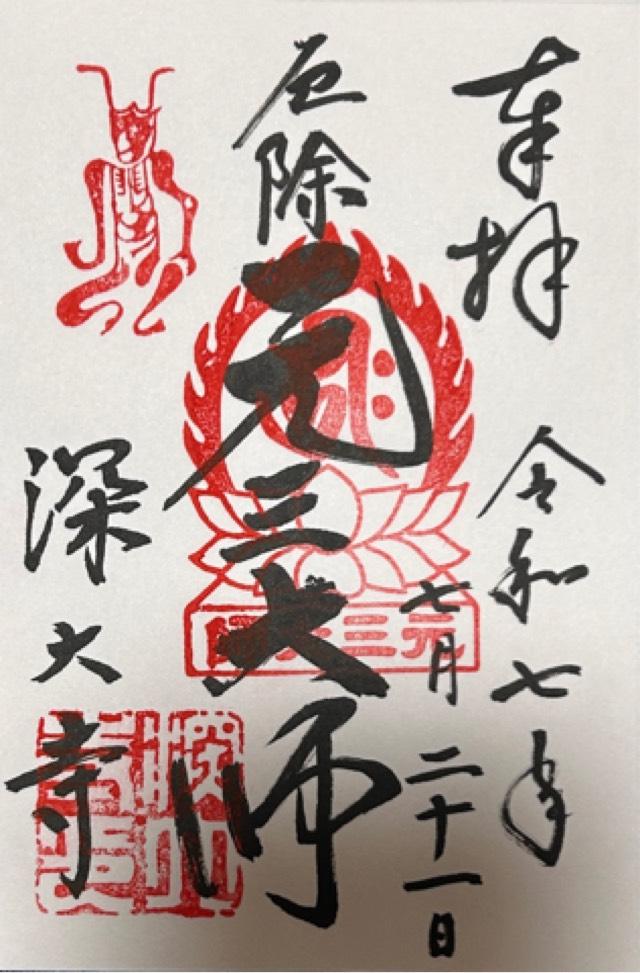 奉拝
令和七年
七月二十一日
厄除
元三大師
元三大師
深大寺